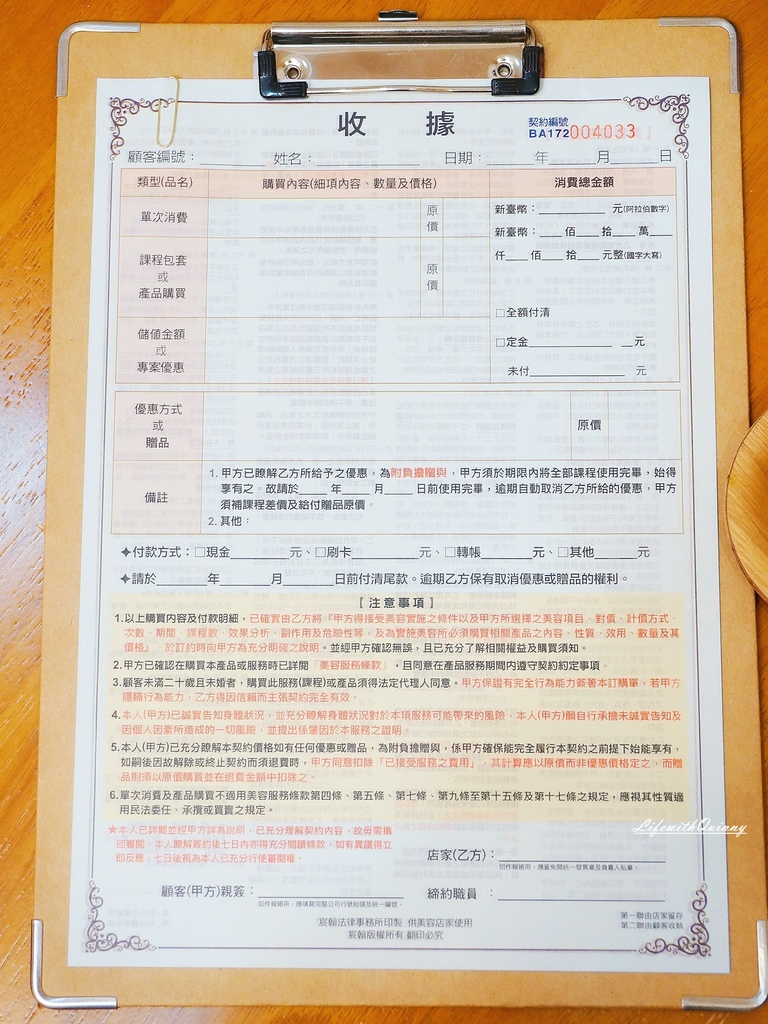 收　據
契約編號
BA172004033
顧客編號：　姓名：　日期：　年　月　日
類型(品名)　購買內容(細項內容、數量及價格)　消費總金額
單次消費　原價　新臺幣：　元(阿拉伯數字)
新臺幣：　佰　拾　萬
仟　佰　拾　元整(國字大寫)
課程包套
或
產品購買　原價
□全額付清
儲值金額
或
專案優惠
□定金　元
未付　元
優惠方式
或
贈品　原價
備註
1. 甲方已瞭解乙方所給予之優惠，為附負擔贈與，甲方須於期限內將全部課程使用完畢，始得
享有之。故請於　年　月　日前使用完畢，逾期自動取消乙方所給的優惠，甲方
須補課程差價及給付贈品原價。
2. 其他：
✦付款方式：□現金　元、□刷卡　元、□轉帳　元、□其他　元
✦請於　年　月　日前付清尾款。逾期乙方保有取消優惠或贈品的權利。
【注意事項】
1.以上購買內容及付款明細，已確實由乙方將『甲方得接受美容實施之條件以及甲方所選擇之美容項目、對價、計價方式、
次數、期間、課程數、效果分析、副作用及危險性等，及為實施美容所必須購買相關產品之內容、性質、效用、數量及其
價格』，於訂約時向甲方為充分明確之說明。並經甲方確認無誤，且已充分了解相關權益及購買須知。
2.甲方已確認在購買本產品或服務時已詳閱「美容服務條款」，且同意在產品服務期間內遵守契約約定事項。
3.顧客未滿二十歲且未婚者，購買此服務(課程)或產品須得法定代理人同意。甲方保證有完全行為能力簽署本訂購單，若甲方
隱瞞行為能力，乙方得因信賴而主張契約完全有效。
4.本人(甲方)已誠實告知身體狀況，並充分瞭解身體狀況對於本項服務可能帶來的風險，本人(甲方)願自行承擔未誠實告知及
因個人因素所造成的一切風險，並提出係肇因於本服務之證明。
5.本人(甲方)已充分瞭解本契約價格如有任何優惠或贈品，為附負擔贈與，係甲方確保能完全履行本契約之前提下始能享有，
如嗣後因故解除或終止契約而須退費時，甲方同意扣除「已接受服務之費用」，其計算應以原價而非優惠價格定之，而贈
品則須以原價購買並在退費金額中扣除之。
6.單次消費及產品購買不適用美容服務條款第四條、第五條、第七條、第九條至第十五條及第十七條之規定，應視其性質適
用民法委任、承攬或買賣之規定。
★本人已詳閱並經甲方詳為說明，已充分理解契約內容，故毋需攜
回審閱。本人瞭解簽約後七日內亦得充分閱讀條款，如有異議得立
即反應，七日後視為本人已充分行使審閱權。
LifewithQuinny
店家(乙方)：
如作報帳用，應蓋免開統一發票章及負責人私章。
顧客(甲方)親簽：　締約職員：
如作報帳用，應填寫完整公司行號抬頭及統一編號。
宸翰法律事務所印製 供美容店家使用
宸翰版權所有 翻印必究
第一聯由店家留存
第二聯由顧客收執